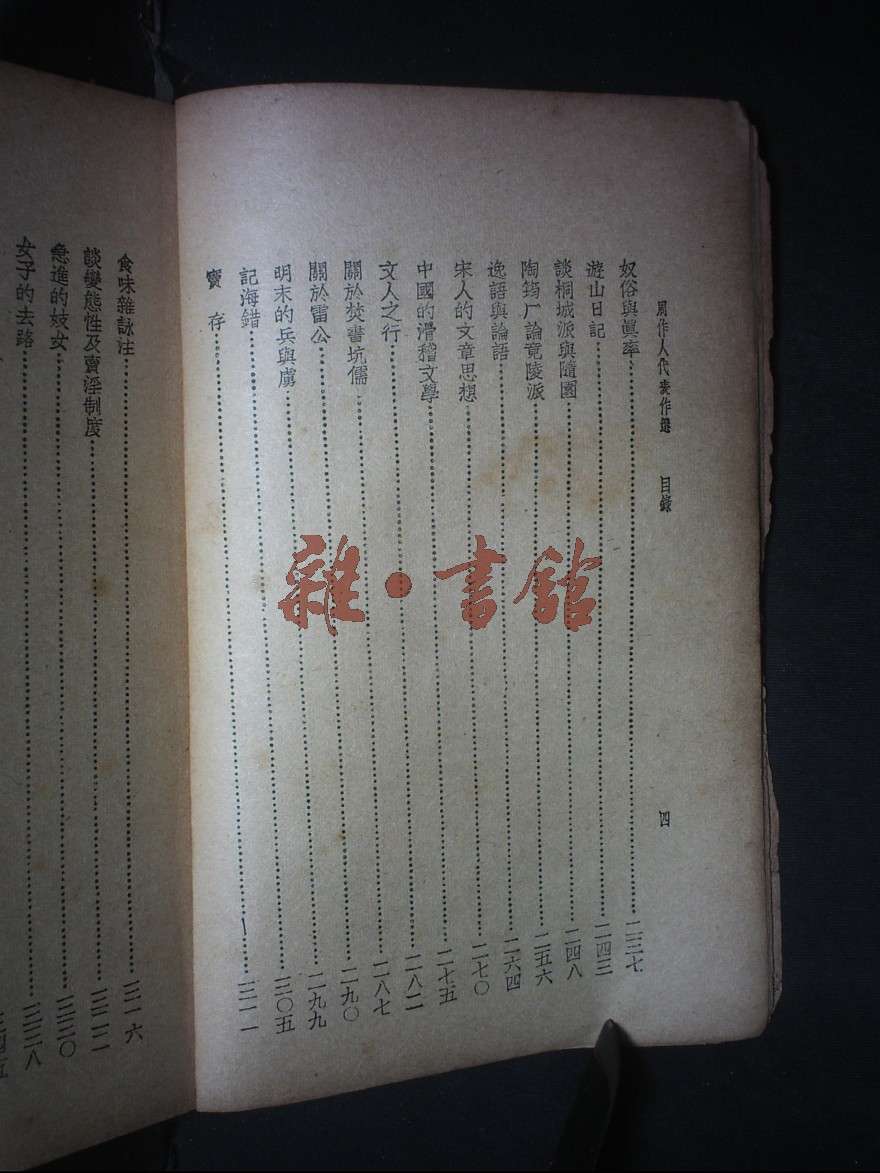 周作人代表作選 目錄 四
奴俗與眞率……二三七
遊山日記……二四三
談桐城派與隨園……二四八
陶筠厂論竟陵派……二五六
逸語與論語……二六四
宋人的文章思想……二七〇
中國的滑稽文學……二七五
文人之行……二八二
關於焚書坑儒……二八七
關於雷公……二九〇
明末的兵與虜……二九九
記海錯……三〇五
竇 存……三一一
食味雜詠注……三一六
談變態性及賣淫制度……三二二
急進的妓女……三三〇
女子的去路……三三八
雜·書館